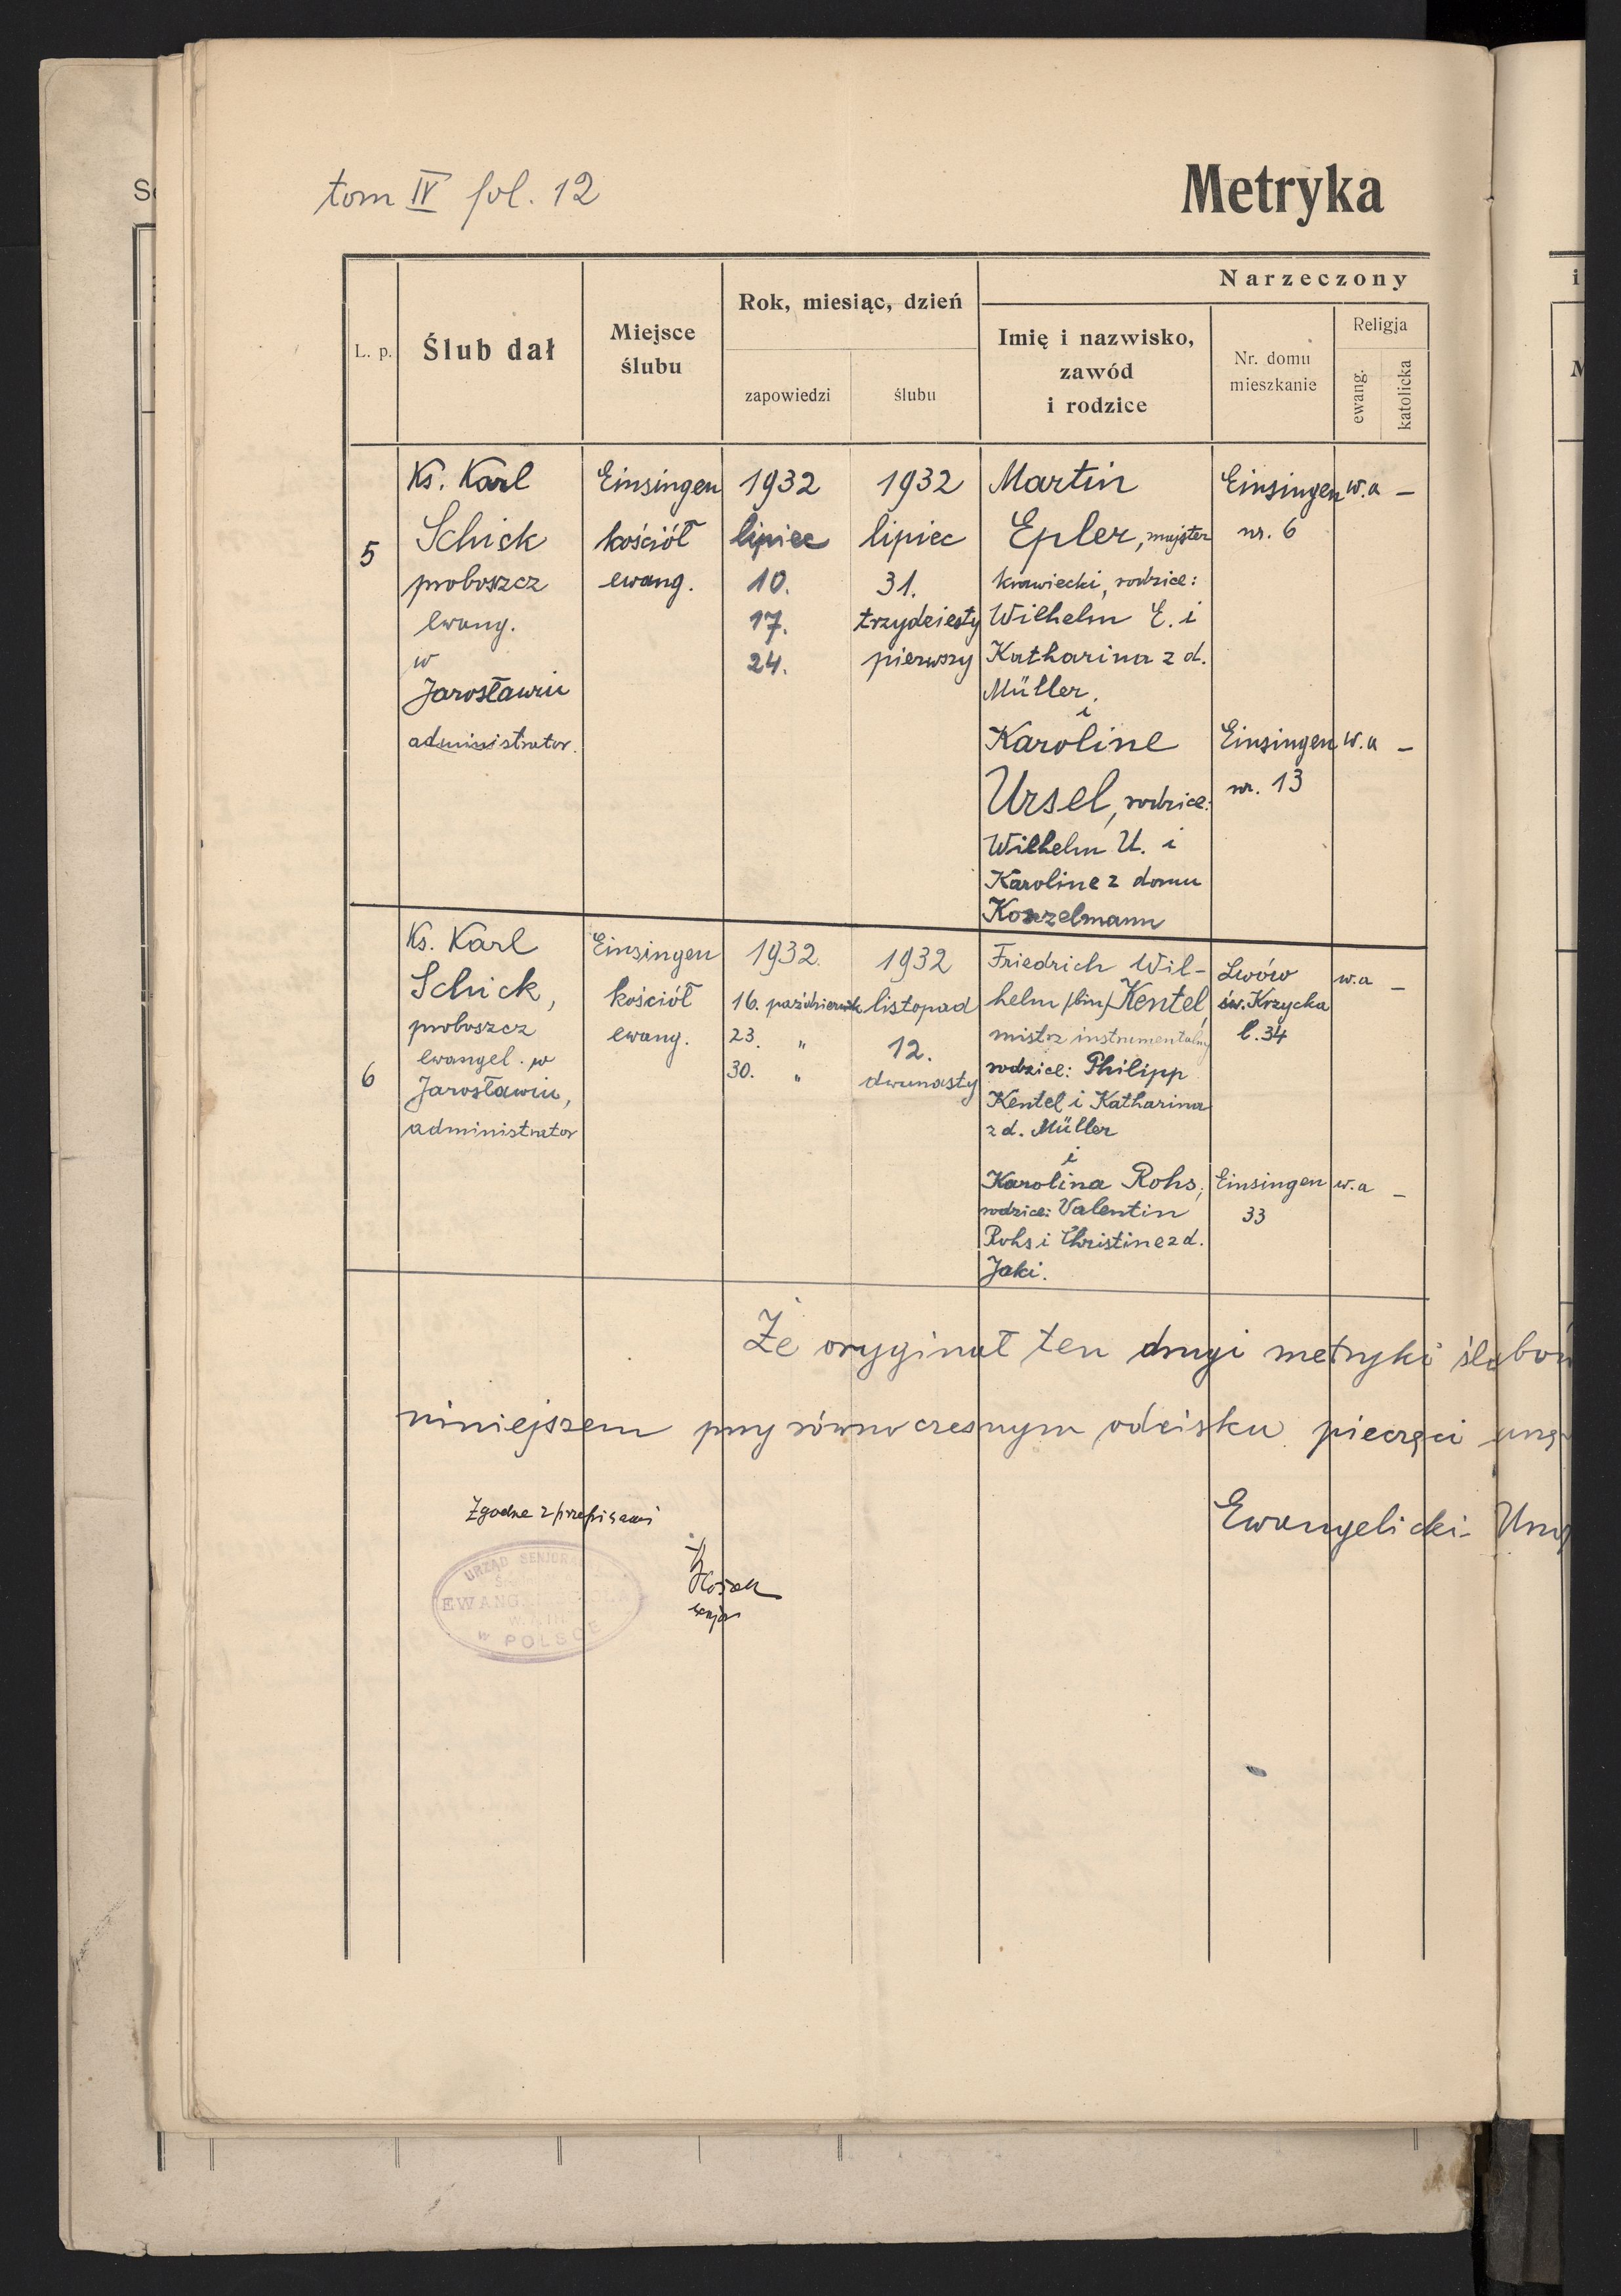 tom IV fol. 12
Metryka
L. p.
Ślub dał
Miejsce
ślubu
Rok, miesiąc, dzień
zapowiedzi
ślubu
Narzeczony
Imię i nazwisko,
zawód
i rodzice
Nr. domu
mieszkanie
Religja
ewang.
katolicka
5
Ks. Karl
Schick
proboszcz
ewang.
w
Jarosławiu
administrator.
Einsingen
kościół
ewang.
1932
lipiec
10.
17.
24.
1932
lipiec
31.
trzydziesty
pierwszy
Martin
Epler, majster
krawiecki, rodzice:
Wilhelm E. i
Katharina z d.
Müller.
i
Karoline
Ursel, rodzice:
Wilhelm U. i
Karoline z domu
Konzelmann
Einsingen
nr. 6
w.a –
Einsingen
nr. 13
w.a –
6
Ks. Karl
Schick,
proboszcz
ewangel. w
Jarosławiu,
administrator
Einsingen
kościół
ewang.
1932.
16. październik
23. "
30. "
1932
listopad
12.
dwunasty
Friedrich Wil-
helm /bin/ Kentel,
mistrz instrumentalny
rodzice: Philipp
Kentel i Katharina
z d. Müller
i
Karolina Rohs;
rodzice: Valentin
Rohs i Christine z d.
Jaki.
Lwów
św. Krzycka
l. 34
w.a –
Einsingen
33
w.a –
Że oryginał ten drugi metryki ślubów
niniejszem przy równoczesnym odcisku pieczęci
Ewangelicki
Zgodne z przepisami
URZĄD SENJORA
EWANG
W POLSCE
senjor